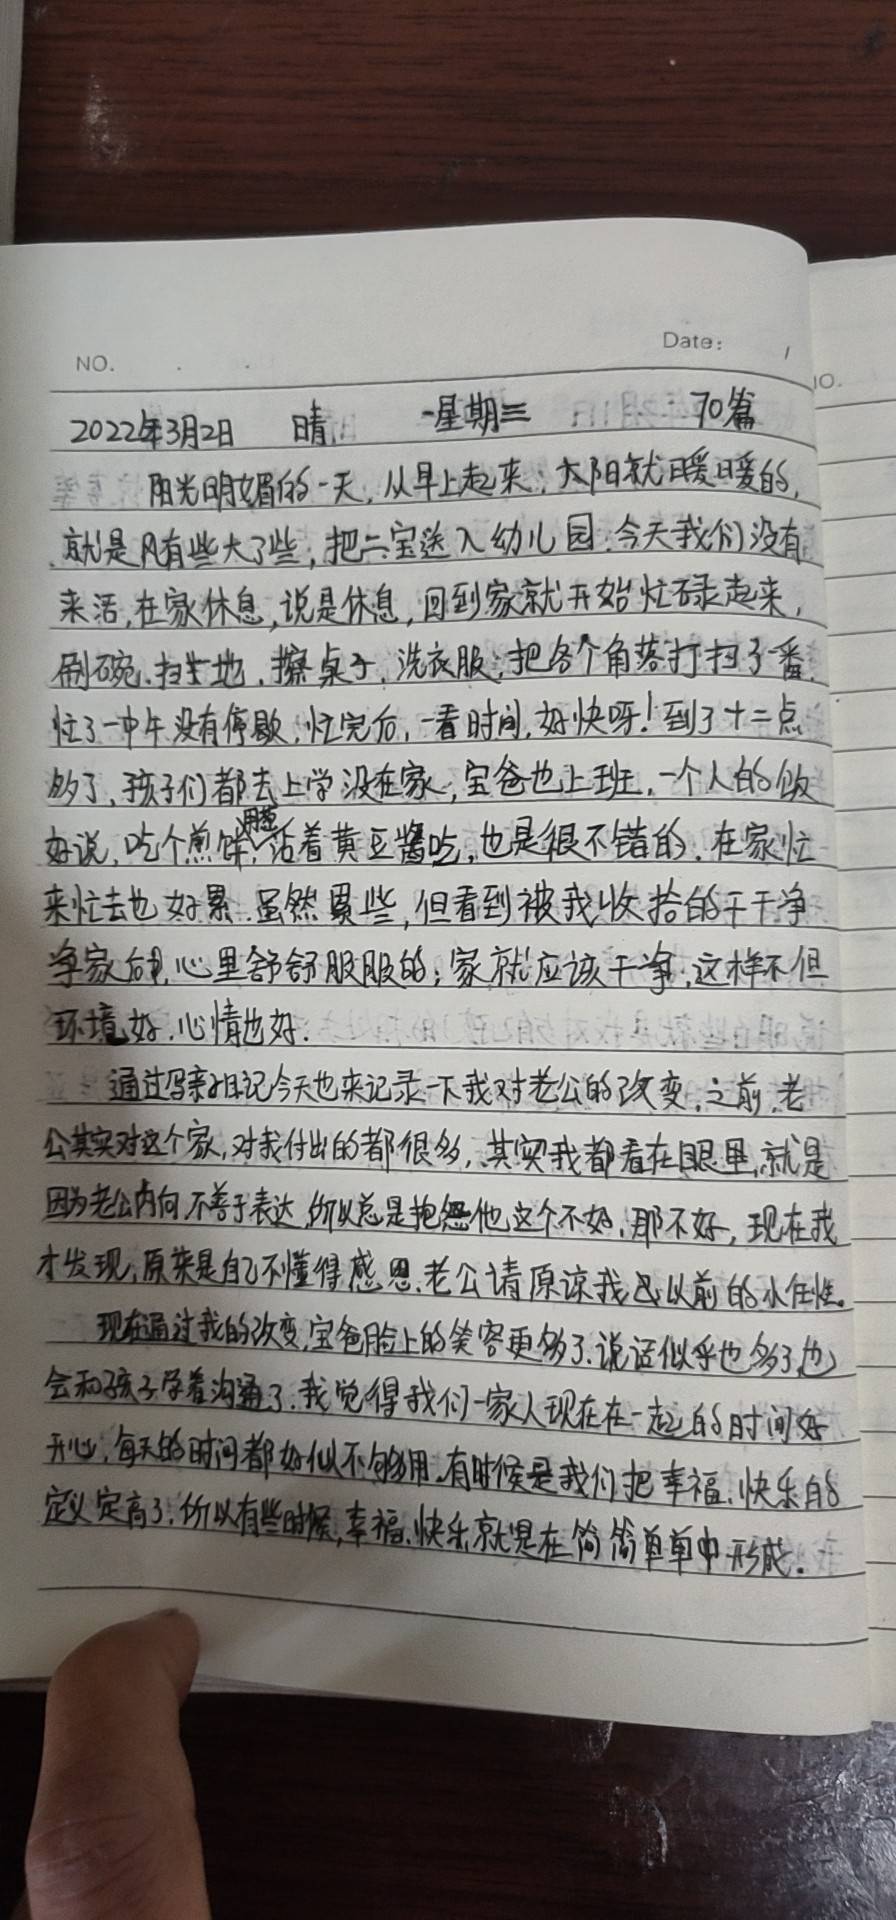 NO.
Date:
2022年3月2日 晴 星期三 70篇
阳光明媚的一天,从早上起来,太阳就暖暖的,
就是风有些大了些,把二宝送入幼儿园.今天我们没有
来活,在家休息,说是休息,回到家就开始忙碌起来,
刷碗.扫地.擦桌子,洗衣服;把各个角落打扫了一番,
忙了一中午没有停歇,忙完后,一看时间,好快呀!到了十二点
多了,孩子们都去上学没在家,宝爸也上班,一个人的饭
好说,吃个煎饼,用葱沾着黄豆酱吃,也是很不错的.在家忙
来忙去也好累.虽然累些,但看到被我收拾的干干净
净家后,心里舒舒服服的;家就应该干净,这样不但
环境好.心情也好.
通过写亲子日记今天也来记录一下我对老公的改变,之前,老
公其实对这个家,对我付出的都很多,其实我都看在眼里,就是
因为老公内向,不善于表达,所以总是抱怨他这个不好,那不好,现在我
才发现,原来是自己不懂得感恩.老公请原谅我以前的小任性。
现在通过我的改变,宝爸脸上的笑容更多了.说话似乎也多了,也
会和孩子学着沟通了.我觉得我们一家人现在在一起的时间好
开心,每天的时间都好似不够用.有时候是我们把幸福.快乐的
定义定高了.所以有些时候,幸福.快乐就是在简简单单中形成.